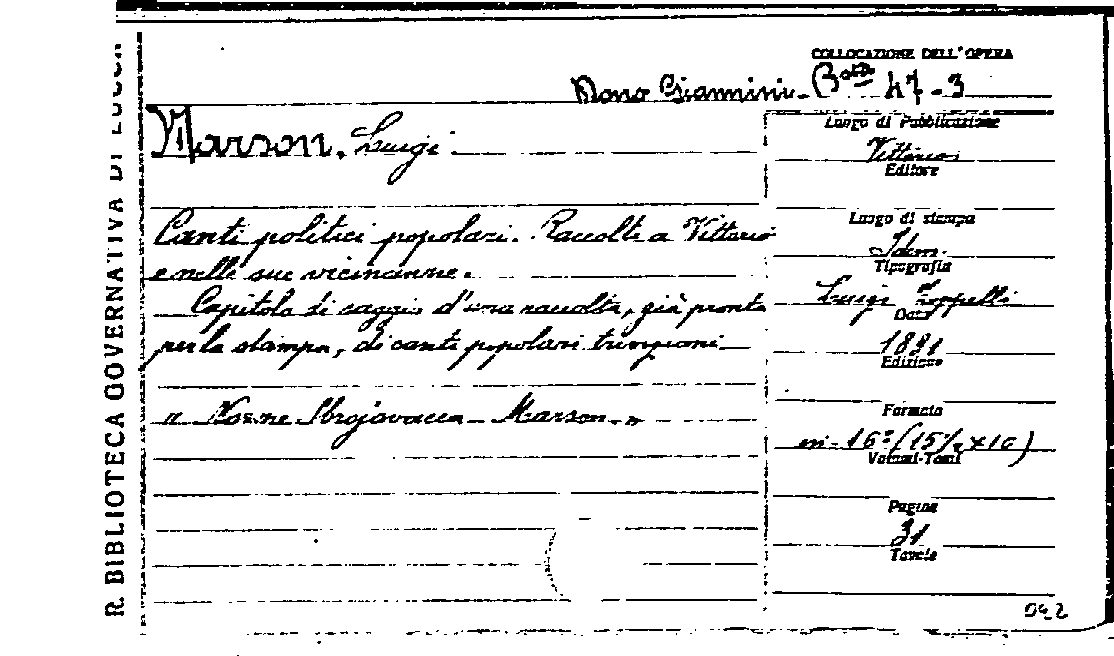 R. BIBLIOTECA GOVERNATIVA DI LUCCA
COLLOCAZIONE DELL'OPERA
Dono Giannini - B.sta 47 - 3
Marson, Luigi.
Luogo di Pubblicazione
Vittorio
Editore
Canti politici popolari. Raccolti a Vittorio
e nelle sue vicinanze.
Capitolo di saggio d'una raccolta, già pronta
per la stampa, di canti popolari trevigiani
" Nozze Sbrojavacca - Marson. "
Luogo di stampa
Idem.
Tipografia
Luigi Zoppelli
Data
1891
Edizione
Formato
in-16° (15½ x 10)
Volumi-Tomi
Pagine
31
Tavole